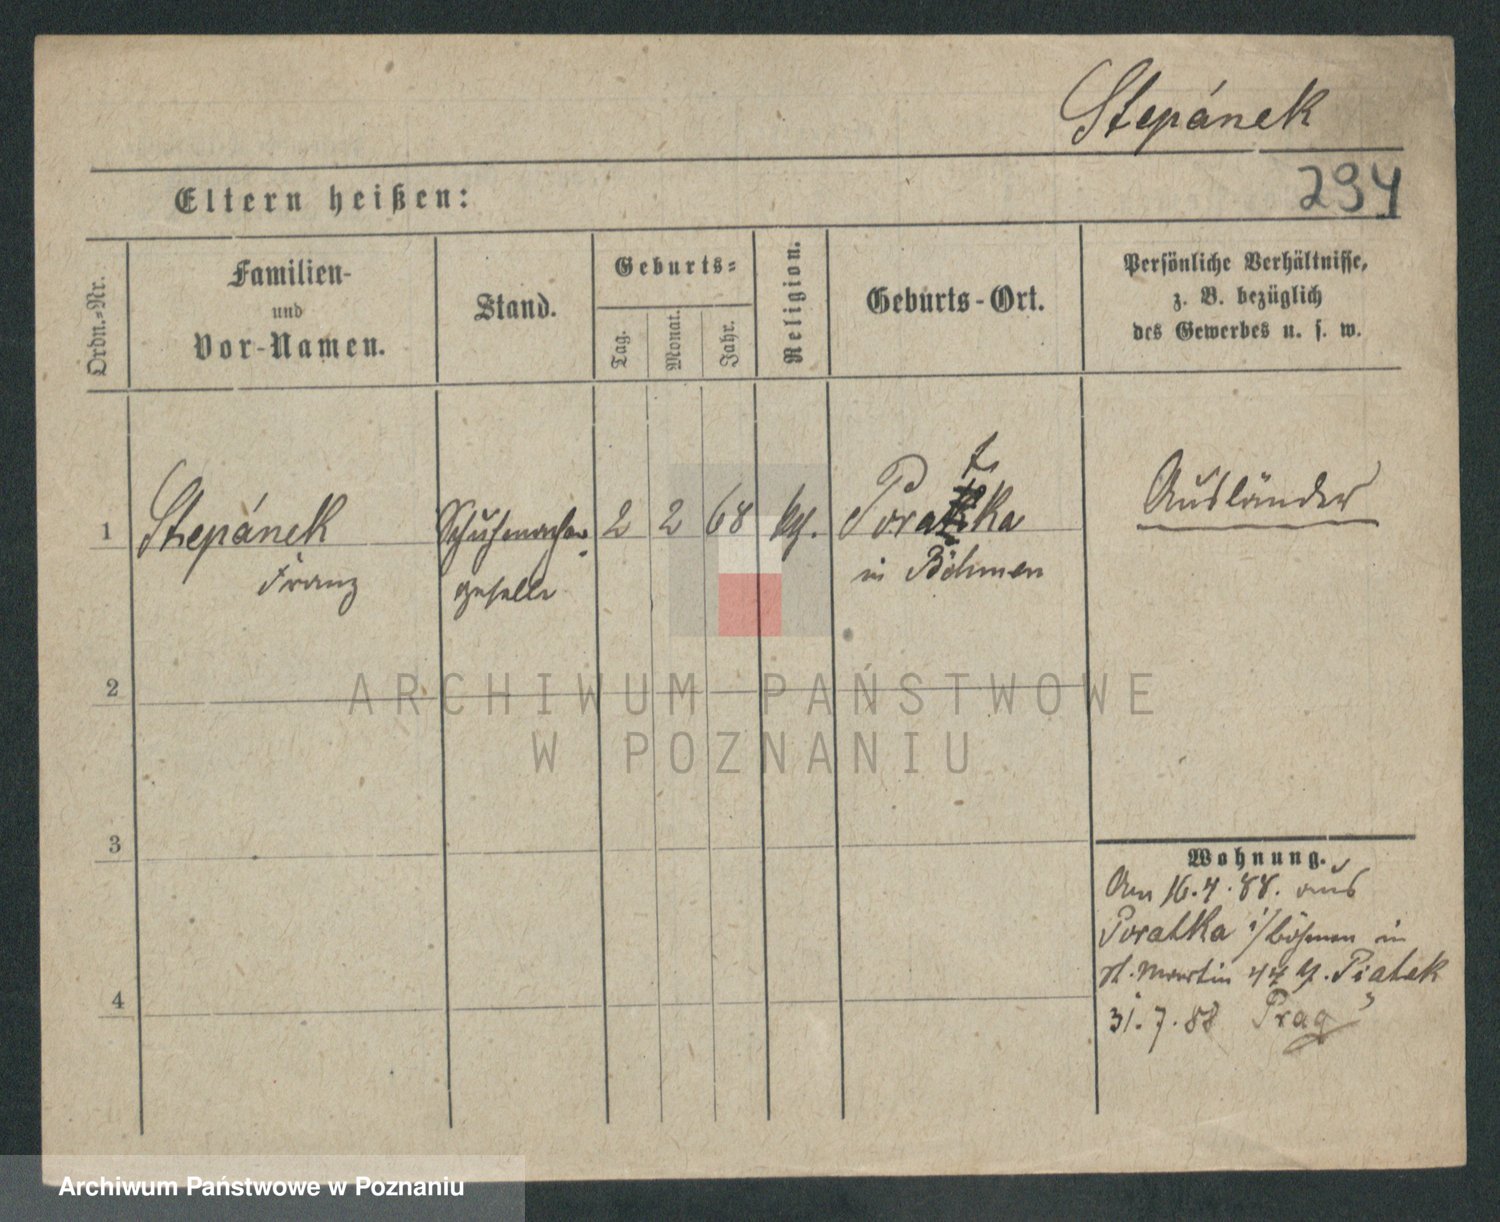 Stepánek
294
Eltern heißen:
Ordn.-Nr.
Familien-
und
Vor-Namen.
Stand.
Geburts-
Tag.
Monat.
Jahr.
Religion.
Geburts-Ort.
Persönliche Verhältnisse,
z. B. bezüglich
des Gewerbes u. s. w.
1
Stepánek
Franz
Schuhmacher-
geselle
2
2
68
t
Poratka
in Böhmen
Ausländer
2
3
4
Wohnung.
Am 16.4.88. aus
Poratka i/Böhmen in
St. Martin 44 Piatek
31.7.88 Prag
ARCHIWUM PAŃSTWOWE
W POZNANIU
Archiwum Państwowe w Poznaniu